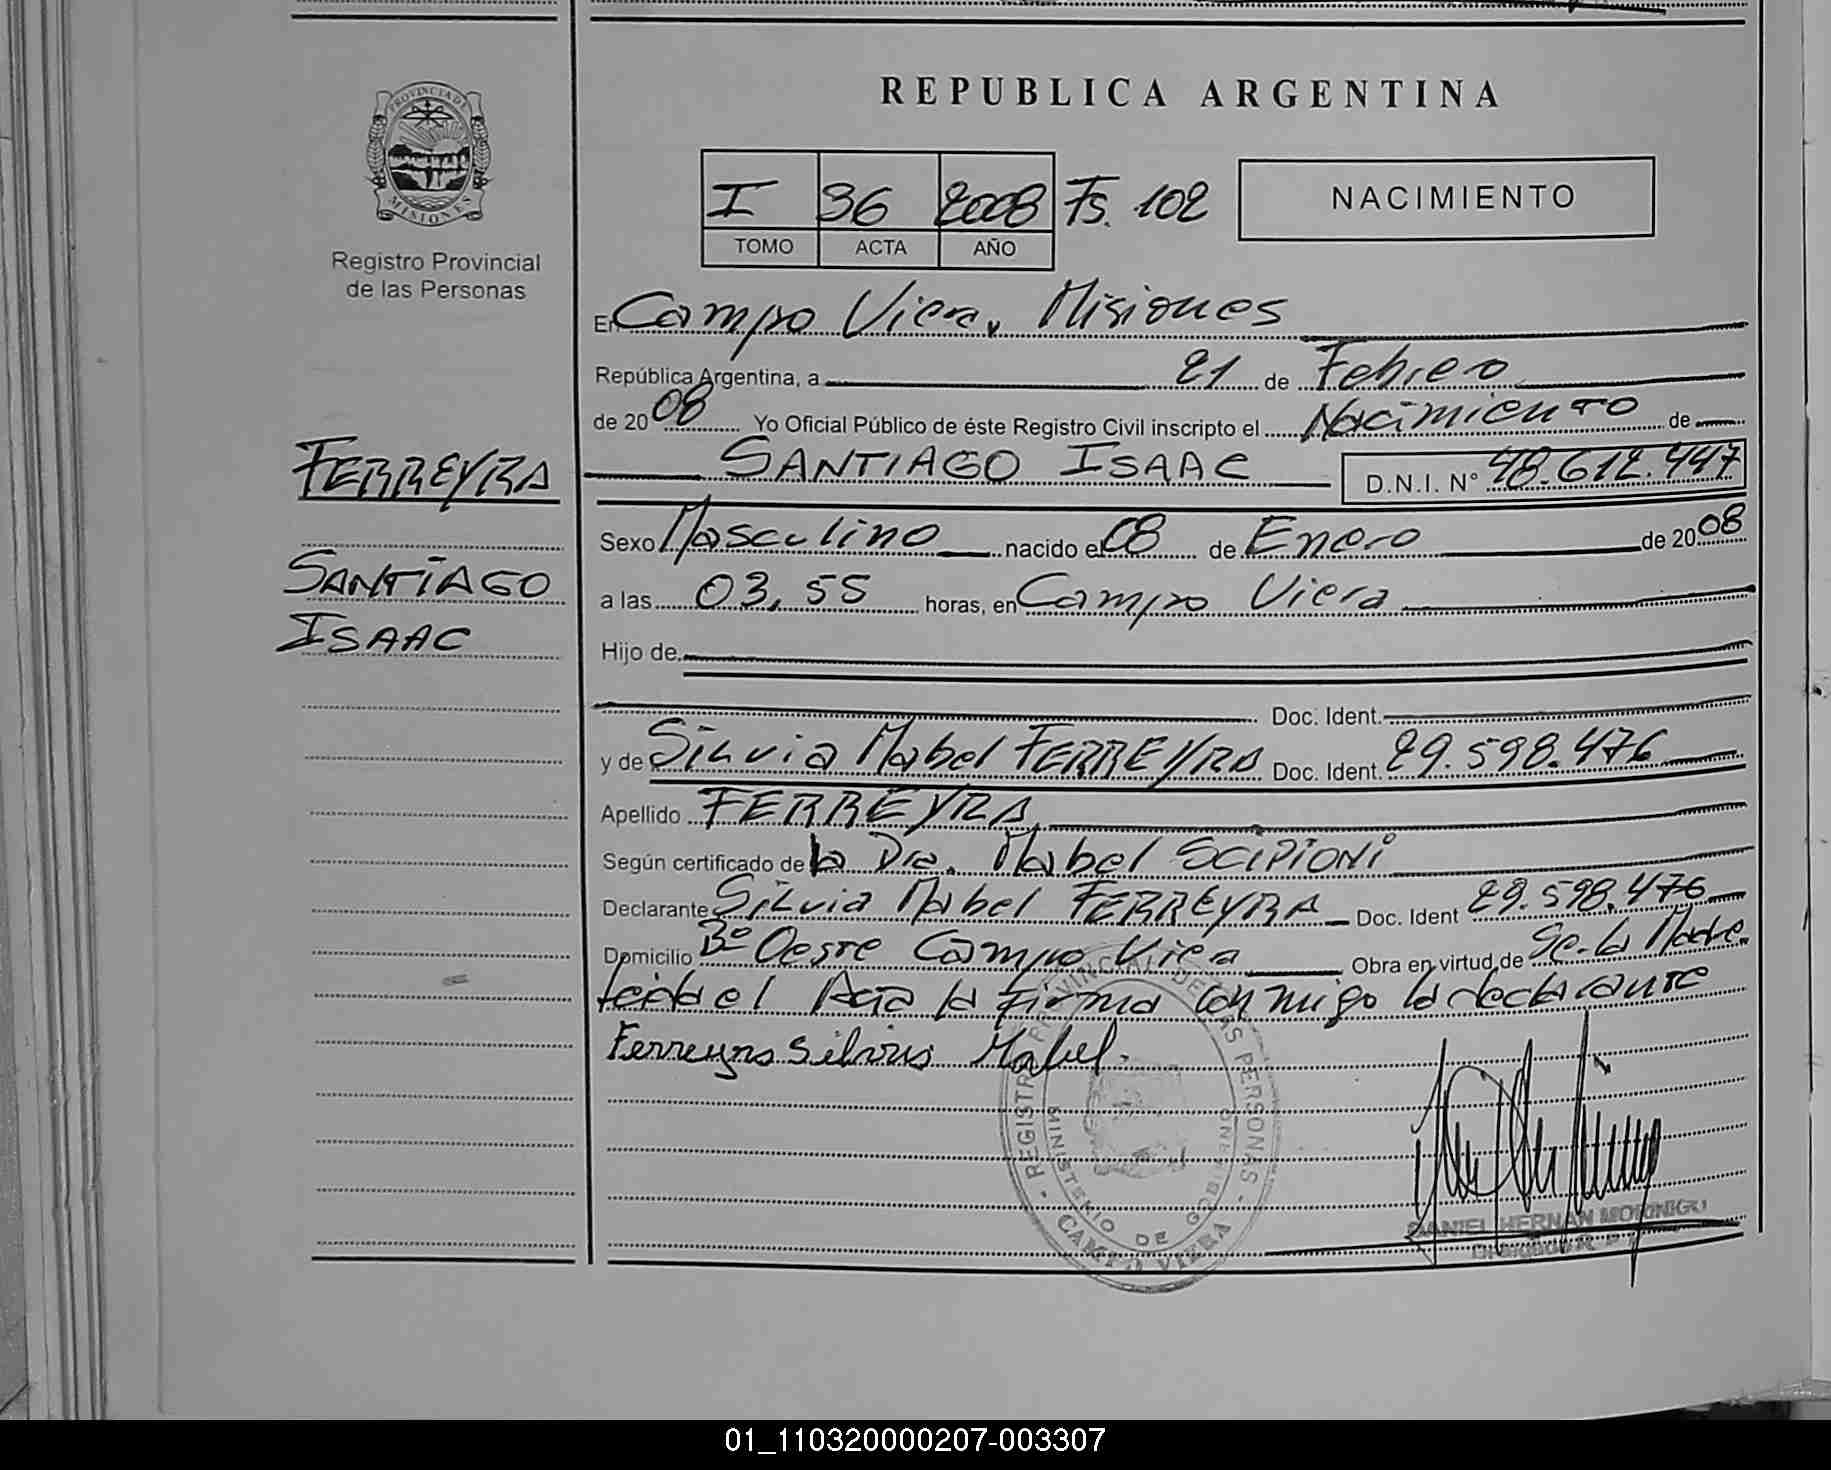 PROVINCIA DE
MISIONES
Registro Provincial
de las Personas
FERREYRA
SANTIAGO
ISAAC
REPUBLICA ARGENTINA
I 36 2008 Fs. 102
TOMO ACTA AÑO
NACIMIENTO
En Campo Viera, Misiones
República Argentina, a 21 de Febrero
de 2008 Yo Oficial Público de éste Registro Civil inscripto el Nacimiento de
SANTIAGO ISAAC D.N.I. N° 48.612.447
Sexo Masculino nacido el 08 de Enero de 2008
a las 03,55 horas, en Campo Viera
Hijo de
Doc. Ident.
y de Silvia Mabel FERREYRA Doc. Ident. 29.598.476
Apellido FERREYRA
Según certificado de la Dra. Mabel SCIPIONI
Declarante Silvia Mabel FERREYRA Doc. Ident 29.598.476
Domicilio Bº Oeste Campo Viera Obra en virtud de Se. la Madre
leida el Acta la firma conmigo la declarante
Ferreyra Silvia Mabel.
REGISTRO PROVINCIAL DE LAS PERSONAS
MINISTERIO DE GOBIERNO
CAMPO VIERA
DANIEL HERNAN MORINIGO
01_110320000207-003307